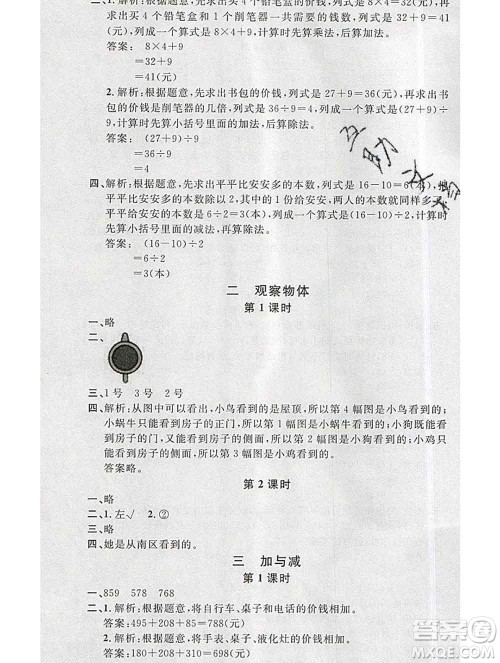 二、1. 解析:根据题意,先求出买4个铅笔盒的价钱,列式是8×4=32(元),再求
出买4个铅笔盒和1个削笔器一共需要的钱数,列式是32+9=41(元),
综合成一个算式是8×4+9,计算时先算乘法,后算加法。
答案: 8×4+9
=32+9
=41(元)
2. 解析:根据题意,先求出书包的价钱,列式是27+9=36(元),再求出书包
的价钱是削笔器的几倍,列式是36÷9=4,综合成一个算式是(27+9)÷9,
计算时先算小括号里面的加法,后算除法。
答案: (27+9)÷9
=36÷9
=4
四、解析:根据题意,先求出平平比安安多的本数,列式是16-10=6(本),
平平比安安多的本数除以2,其中的1份给安安,两人的本数就同样多,
列式是6÷2=3(本),综合成一个算式是(16-10)÷2,计算时先算
小括号里面的减法,后算除法。
答案: (16-10)÷2
=6÷2
=3(本)
二 观察物体
第1课时
一、略
二、
三、1号 3号 2号
四、解析:从图中可以看出,小鸟看到的是屋顶,所以第4幅图是小鸟看到的,
小蜗牛只能看到房子的正门,所以第1幅图是小蜗牛看到的,小狗既能看
到房子的门,又能看到房子的侧面,所以第2幅图是小狗看到的,小鸡只能
看到房子的侧面,所以第3幅图是小鸡看到的。
答案略。
第2课时
一、略
二、1. 左√ 2. ②
三、略
四、她是从南区看到的。
三 加与减
第1课时
一、859 578 768
二、1. 解析:根据题意,将自行车、桌子和电话的价钱相加。
答案:495+208+85=788(元)
2. 解析:根据题意,将手表、桌子、液化灶的价钱相加。
答案:180+208+310=698(元)